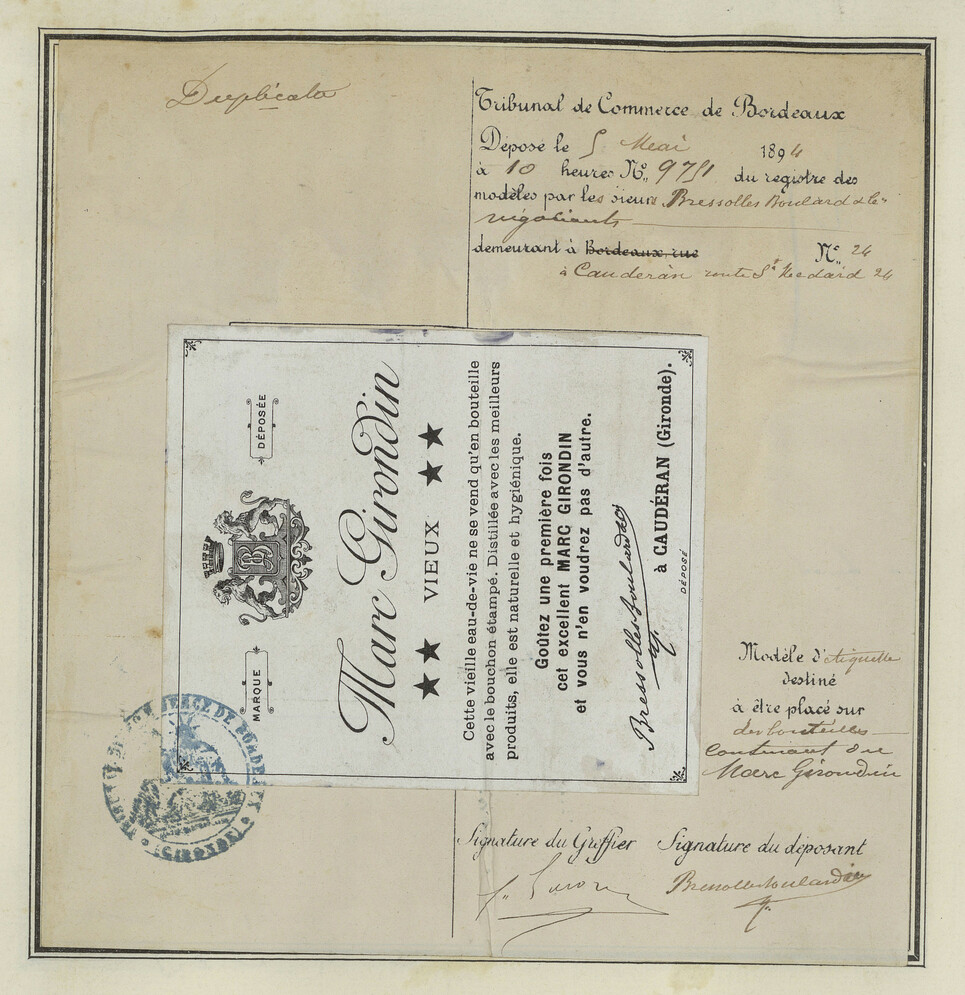 Duplicata
Tribunal de Commerce de Bordeaux
Déposé le 5 Mai 1894
à 10 heures N° 9751 du registre des
modèles par les sieurs Bressolles Boulard & Cie
négociants
demeurant à Bordeaux, rue N° 24
à Cauderan route St Medard 24
MARQUE DÉPOSÉE
B
Marc Girondin
★★ VIEUX ★★
Cette vieille eau-de-vie ne se vend qu'en bouteille
avec le bouchon étampé. Distillée avec les meilleurs
produits, elle est naturelle et hygiénique.
Goûtez une première fois
cet excellent MARC GIRONDIN
et vous n'en voudrez pas d'autre.
Bressolles Boulard & Cie
à CAUDÉRAN (Gironde).
DÉPOSÉ
Modèle d'étiquette
destiné
à être placé sur
des bouteilles
contenant du
Marc Girondin
TRIBUNAL DE COMMERCE DE BORDEAUX
(GIRONDE)
Signature du Greffier Signature du déposant
Bressolles Boulard & Cie